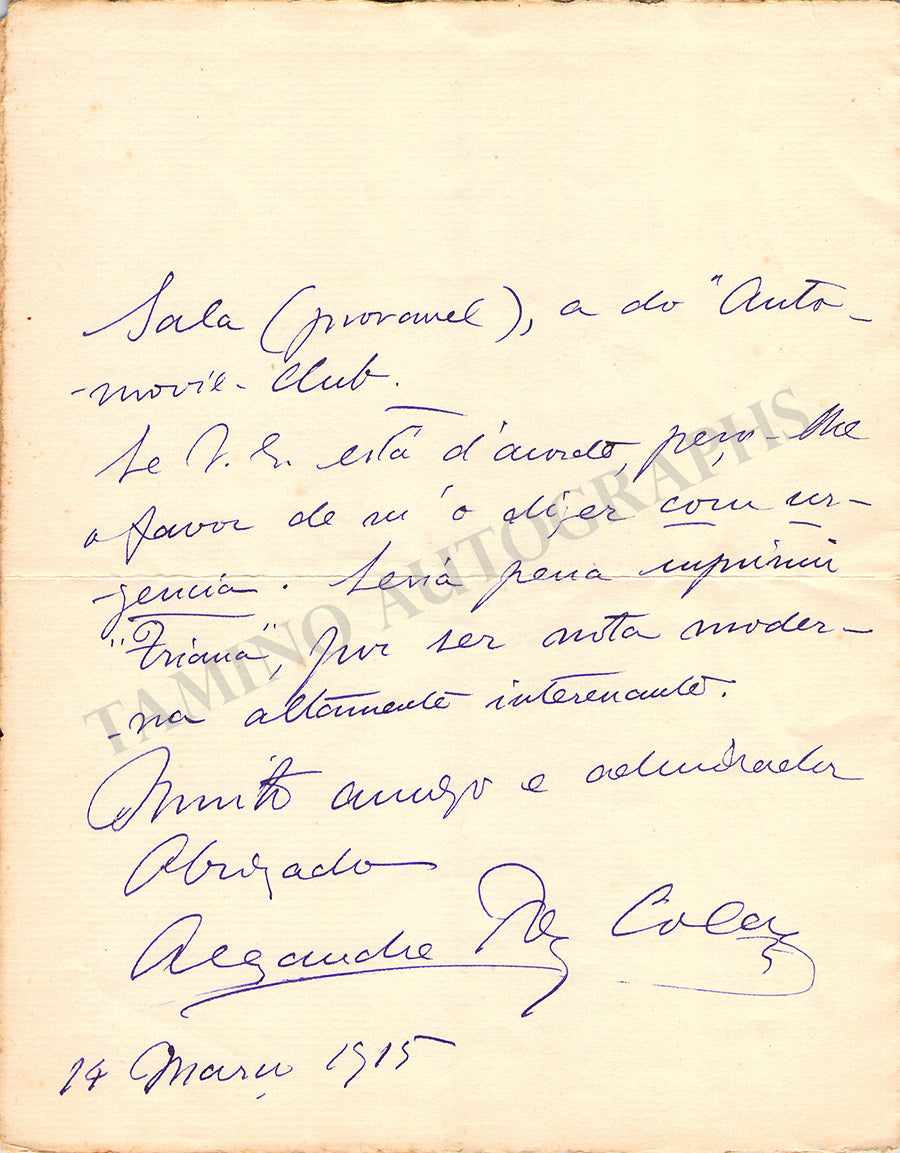 Sala (provavel), a do "Auto-
-movil-Club.
Se V. Ex. está d'acordo, peço-lhe
o favor de m'o dizer com ur-
-gencia. Será pena suprimir
"Triana", por ser nota moder-
-na altamente interessante.
Muito amigo e admirador
Obrigado
Alexandre Rey Colaço
14 Março 1915
TAMINO AUTOGRAPHS